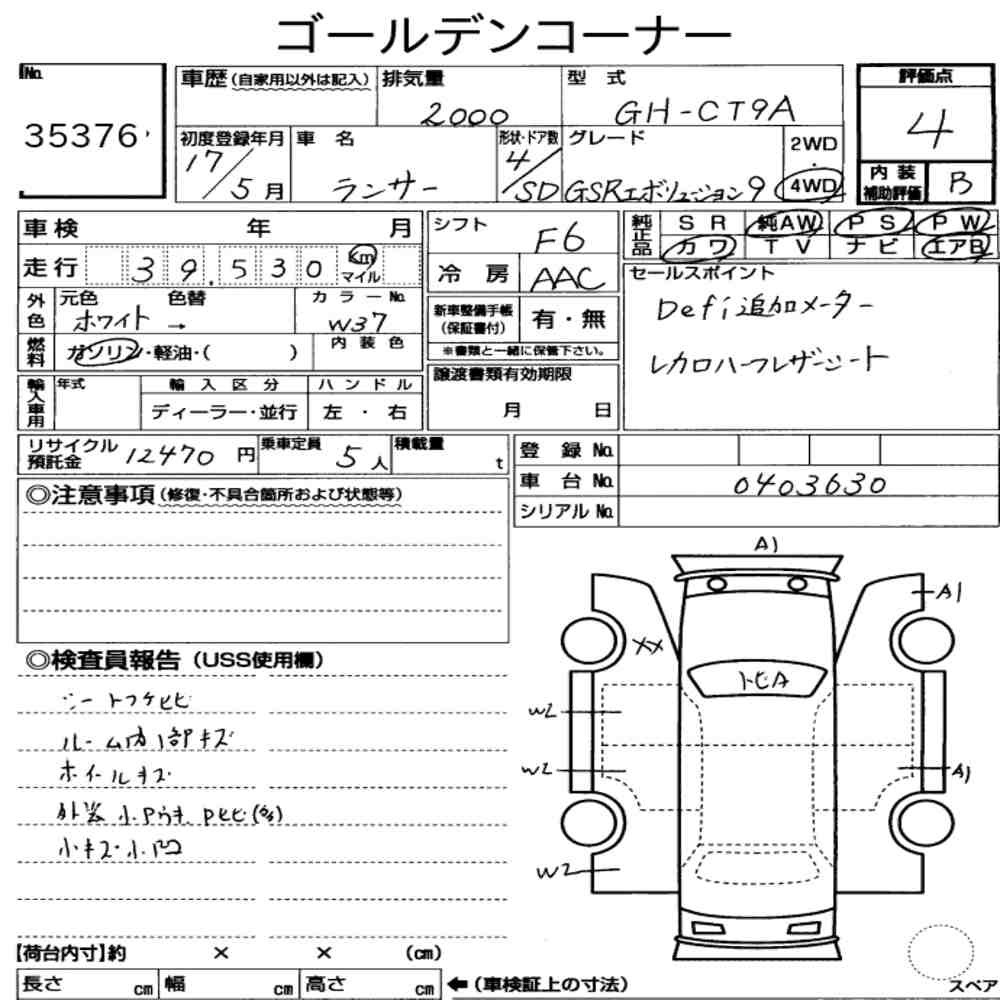 ゴールデンコーナー
No.
35376
車歴(自家用以外は記入)
排気量
2000
型 式
GH-CT9A
評価点
4
初度登録年月
17/5月
車 名
ランサー
形状・ドア数
4/SD
グレード
GSRエボリューション9
2WD
・
4WD
内装
補助評価
B
車検 年 月
走行 39,530 Km
マイル
シフト
F6
冷 房
AAC
純正品
SR 純AW PS PW
カワ TV ナビ エアB
外色
元色 色替
ホワイト →
カラーNo.
W37
燃料
ガソリン・軽油・( )
内装色
新車整備手帳
(保証書付)
有・無
※書類と一緒に保管下さい。
セールスポイント
Defi追加メーター
レカロハーフレザーシート
輸入車用
年式
輸入区分
ディーラー・並行
ハンドル
左 ・ 右
譲渡書類有効期限
月 日
リサイクル
預託金
12470 円
乗車定員
5人
積載量
t
登 録 No.
車 台 No.
0403630
シリアル No.
◎注意事項(修復・不具合箇所および状態等)
◎検査員報告(USS使用欄)
シートフケヒビ
ルーム内1部キズ
ホイールキズ
小キズ・小凹
A1
A1
XX
トビA
W2
W2
A1
W2
【荷台内寸】約 × × (cm)
長さ cm 幅 cm 高さ cm
←(車検証上の寸法)
スペア